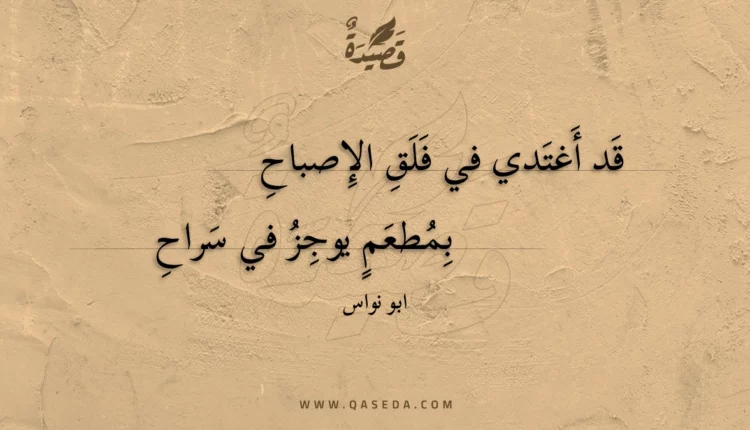 قَصِيدَةٌ
قَد أَغتَدي في فَلَقِ الإِصباحِ
بِمُطعَمٍ يوجِزُ في سَراحِ
ابو نواس
WWW.QASEDA.COM